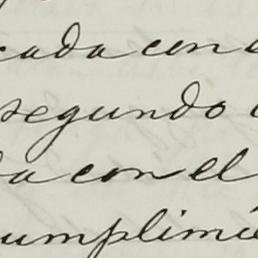 cada con
segundo
da con el
umplimi